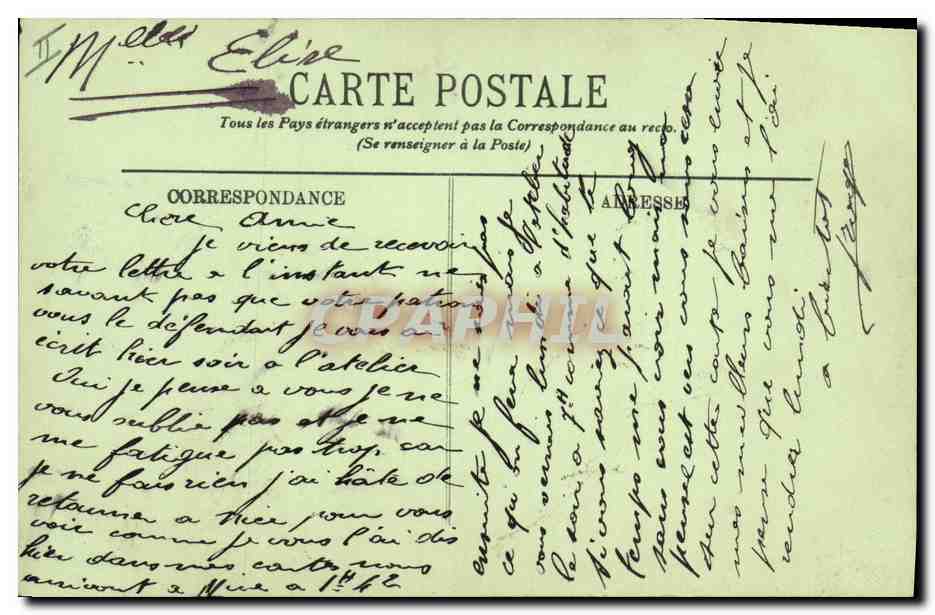 II
Melle Elise
CARTE POSTALE
Tous les Pays étrangers n'acceptent pas la Correspondance au recto.
(Se renseigner à la Poste)
CORRESPONDANCE
ADRESSE
Chere Amie
Je viens de recevoir
votre lettre a l'instant ne
savant pas que votre patron
vous le defendait je vous ai
écrit hier soir a l'atelier
Oui je pense a vous je ne
vous oublie pas et je ne
me fatigue pas trop car
je ne fais rien j'ai hâte de
retourner a Nice pour vous
voir comme je vous l'ai dis
hier dans mes cartes nous
arrivont a Nice a 1H 42
ensuite je ne sais pas
ce qu'on fera mais je
vous verrais lundi a l'atelier
le soir a 7H comme d'habitude
si vous saviez que le
temps me parait long
sans vous voir mais ma
pensee est vers vous sans cesse
sur cette carte je vous envoie
mes meilleurs baisers et je
pense que vous me l'ai
rendrez lundi
a bientot
CPAPHIL